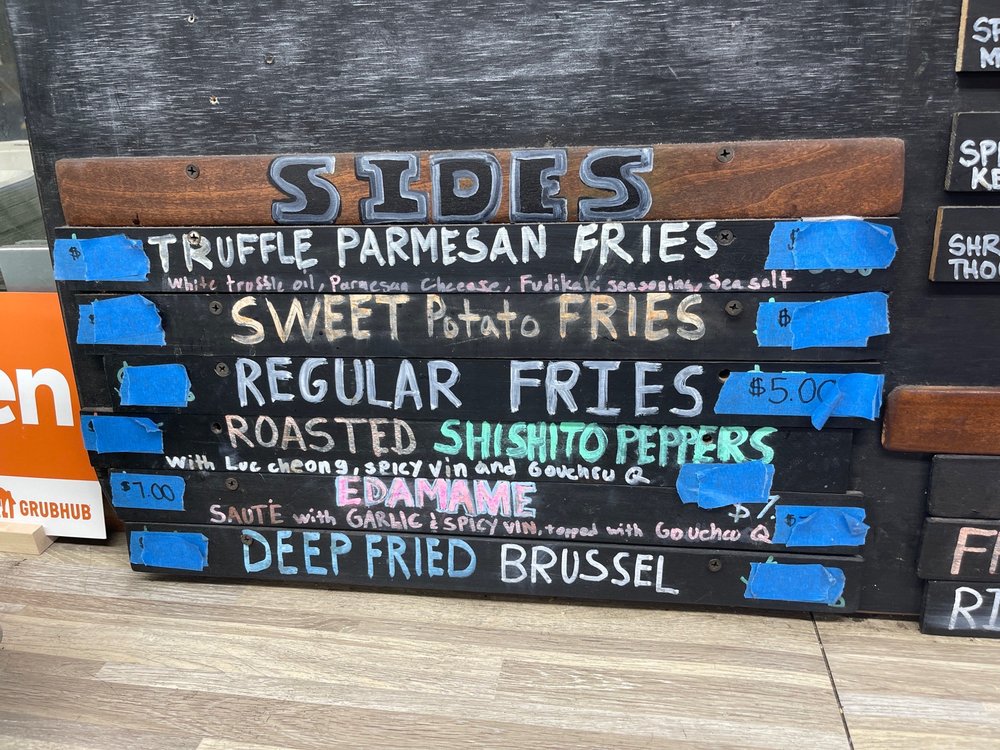 SIDES
$ TRUFFLE PARMESAN FRIES $
White truffle oil, Parmesan Cheease, Fudikaki seasoning, Sea salt
SWEET Potato FRIES $
REGULAR FRIES $5.00
ROASTED SHISHITO PEPPERS
with Luc cheong, spicy vin and Gouchru Q
$7.00 EDAMAME
SAUTE with GARLIC & SPICY VIN, topped with Gouchru Q
DEEP FRIED BRUSSEL
en
GRUBHUB
SP
KE
SHR
THO
F
RI